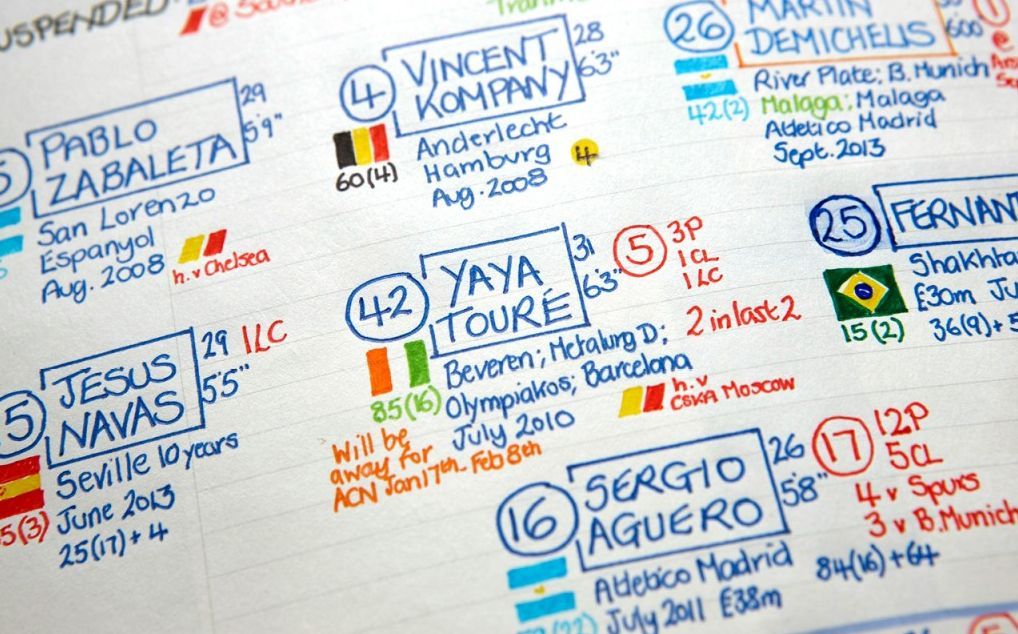 USPENDED
Tranm
29
PABLO
ZABALETA
5'9"
San Lorenzo
Espanyol
Aug. 2008
h.v Chelsea
4
VINCENT
KOMPANY
28
6'3"
60(4)
Anderlecht
Hamburg
4
Aug. 2008
26
MARTIN
DEMICHELIS
600
42(2)
River Plate; B. Munich
Malaga; Malaga
Atletico Madrid
Sept. 2013
42
YAYA
TOURÉ
31
6'3"
5
3P
1CL
1LC
2 in last 2
85(16)
Beveren; Metalurg D;
Olympiakos; Barcelona
July 2010
h.v
CSKA Moscow
Will be
away for
ACN Jan 17th - Feb 8th
25
FERNAN
Shakhta
£30m Ju
15(2)
36(9)+5
5
JESUS
NAVAS
29
1LC
5'5"
5(3)
Seville 10 years
June 2013
25(17)+4
16
SERGIO
AGUERO
26
5'8"
17
12P
5CL
4 v Spurs
3 v B.Munich
Atletico Madrid
July 2011 £38m
84(16)+64